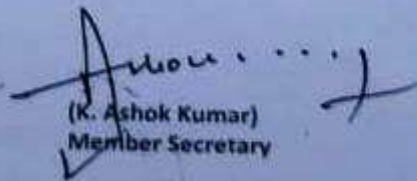 (K. Ashok Kumar)
Member Secretary